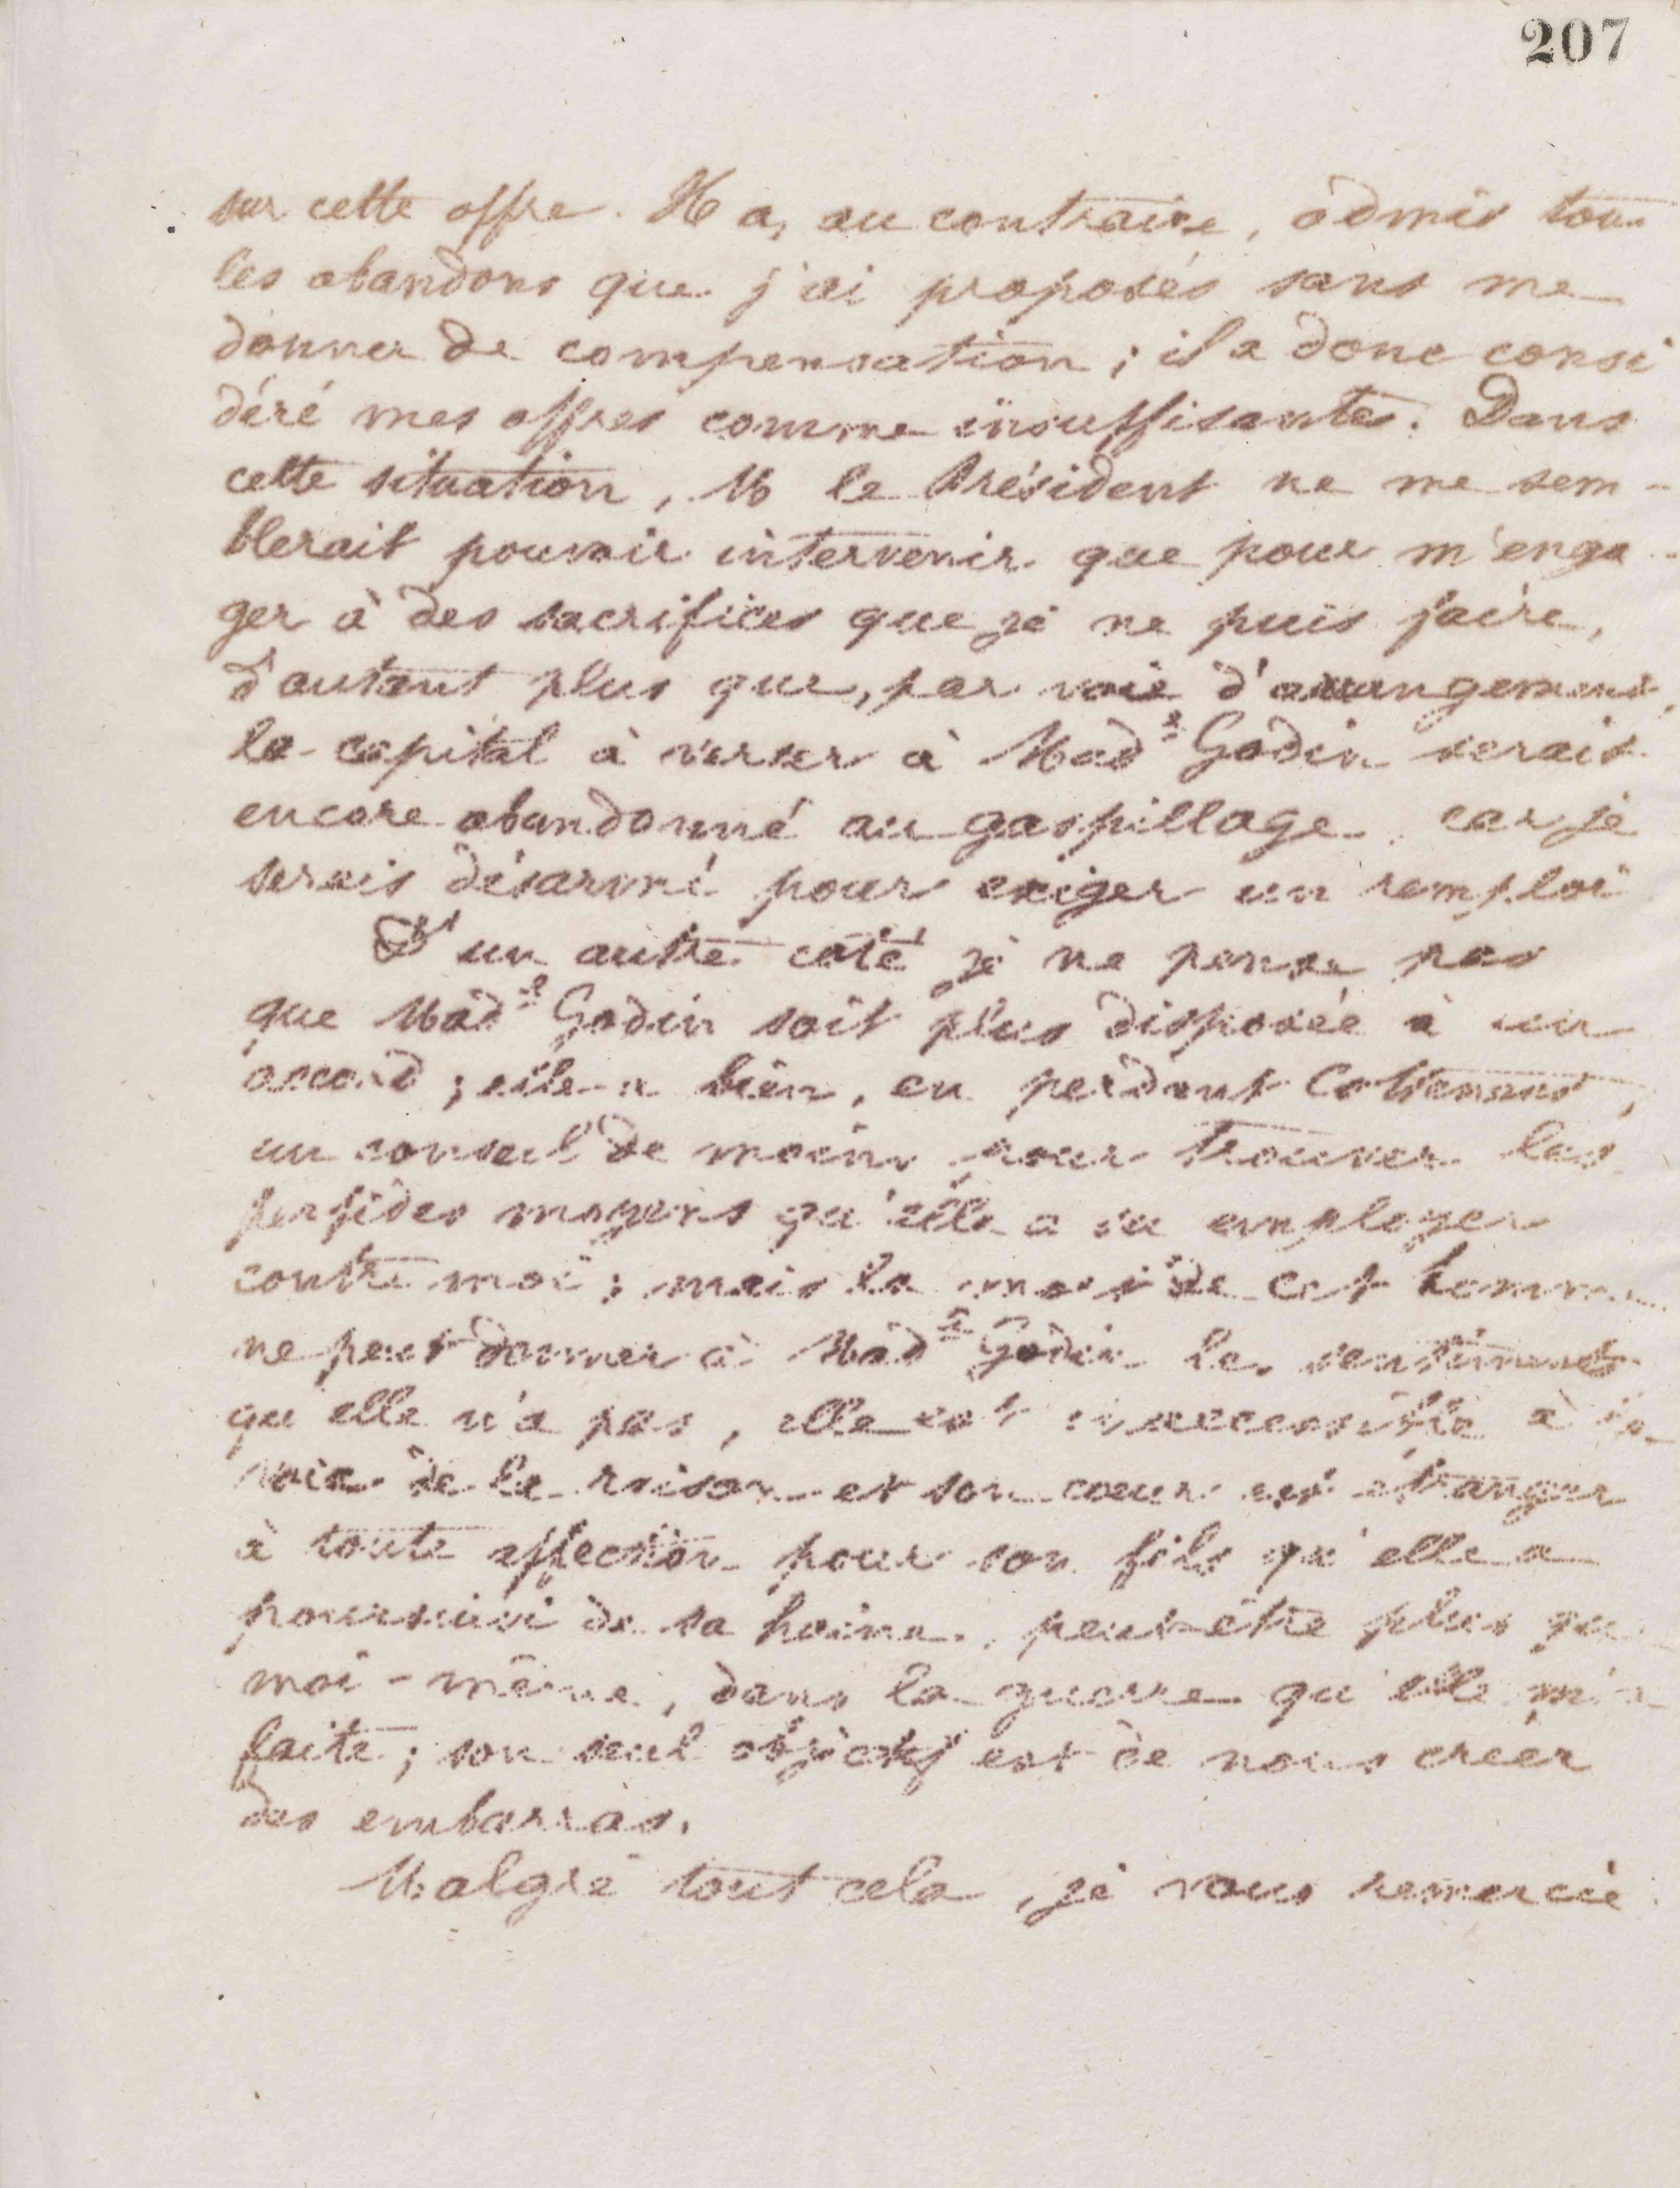 207
sur cette offre. Il a, au contraire, admis tous
les abandons que j'ai proposés sans me
donner de compensation ; il a donc consi
déré mes offres comme insuffisantes. Dans
cette situation, M le Président ne me sem-
blerait pouvoir intervenir que pour m'enga-
ger à des sacrifices que je ne puis faire,
d'autant plus que, par voie d'arrangement,
le capital à verser à Mad.e Godin serait
encore abandonné au gaspillage car je
serais désarmé pour exiger un remploi
D'un autre côté je ne pense pas
que Mad.e Godin soit plus disposée à un
accord ; elle a bien, en perdant
un conseil de moins pour trouver les
perfides moyens qu'elle a su employer
contre moi ; mais la mort de cet homme
ne peut donner à Mad.e Godin les sentiments
qu'elle n'a pas, elle est inaccessible à la
voix de la raison et son cœur est étranger
à toute affection pour son fils qu'elle a
poursuivi de sa haine, peut-être plus que
moi-même, dans la guerre qu'elle m'a
faite ; son seul objectif est de nous créer
des embarras.
Malgré tout cela, je vous remercie